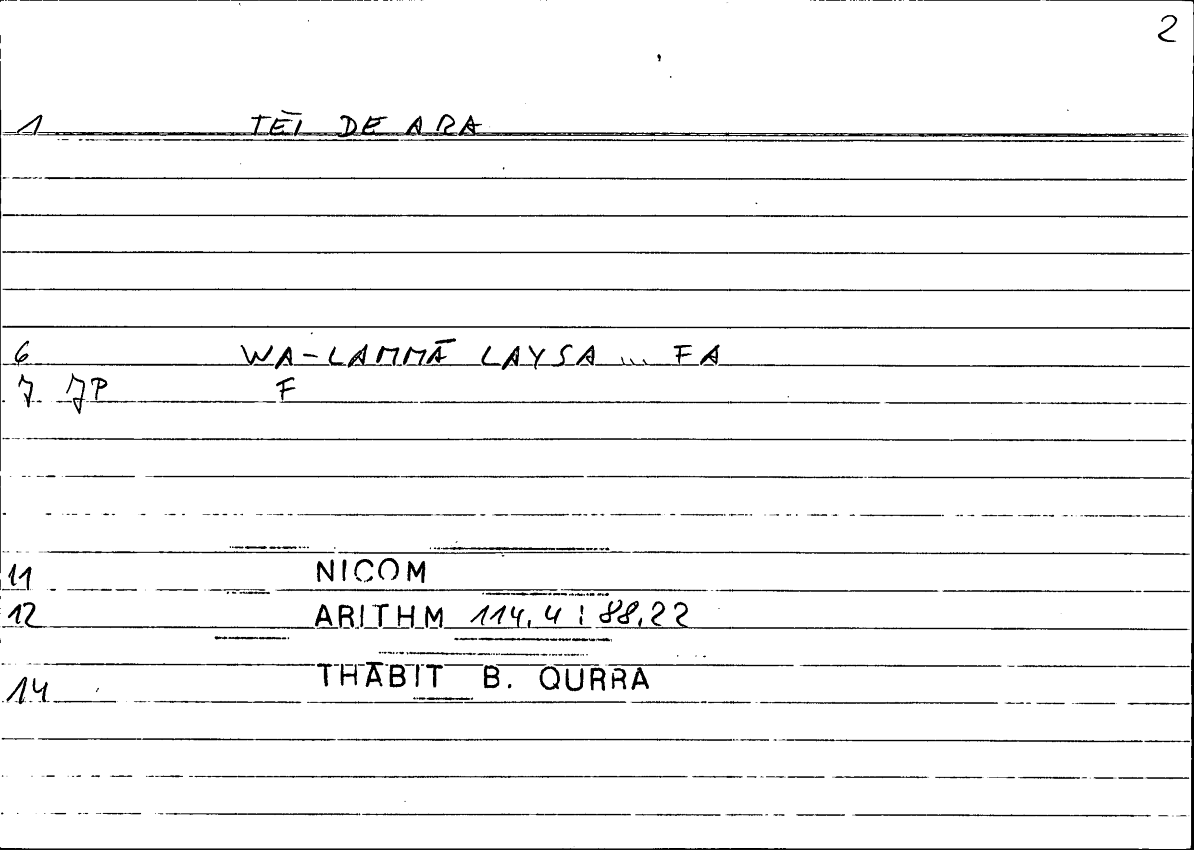 2
1 TĒI DE ARA
6 WA-LAMMĀ LAYSA ... FA
7 JP F
11 NICOM
12 ARITHM 114,4 : 88,22
14 THĀBIT B. QURRA